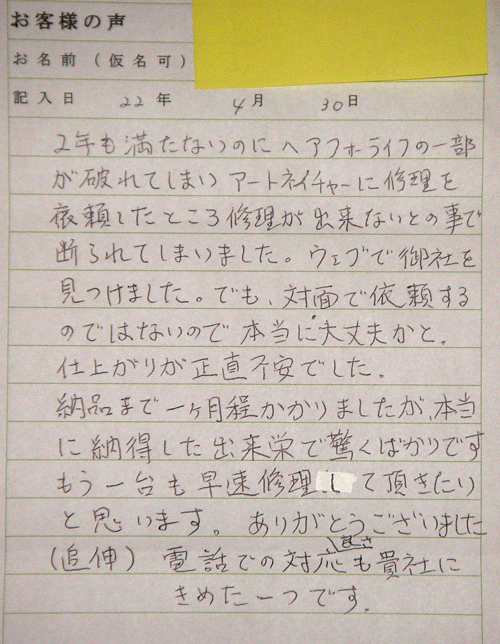 お客様の声
お名前(仮名可)
記入日 22年 4月 30日
2年も満たないのにヘアフォーライフの一部
が破れてしまいアートネイチャーに修理を
依頼したところ修理が出来ないとの事で
断られてしまいました。ウェブで御社を
見つけました。でも、対面で依頼する
のではないので本当に大丈夫かと、
仕上がりが正直不安でした。
納品まで一ヶ月程かかりましたが、本当
に納得した出来栄で驚くばかりです
もう一台も早速修理して頂きたい
と思います。ありがとうございました
(追伸) 電話での対応も貴社に
きめた一つです。